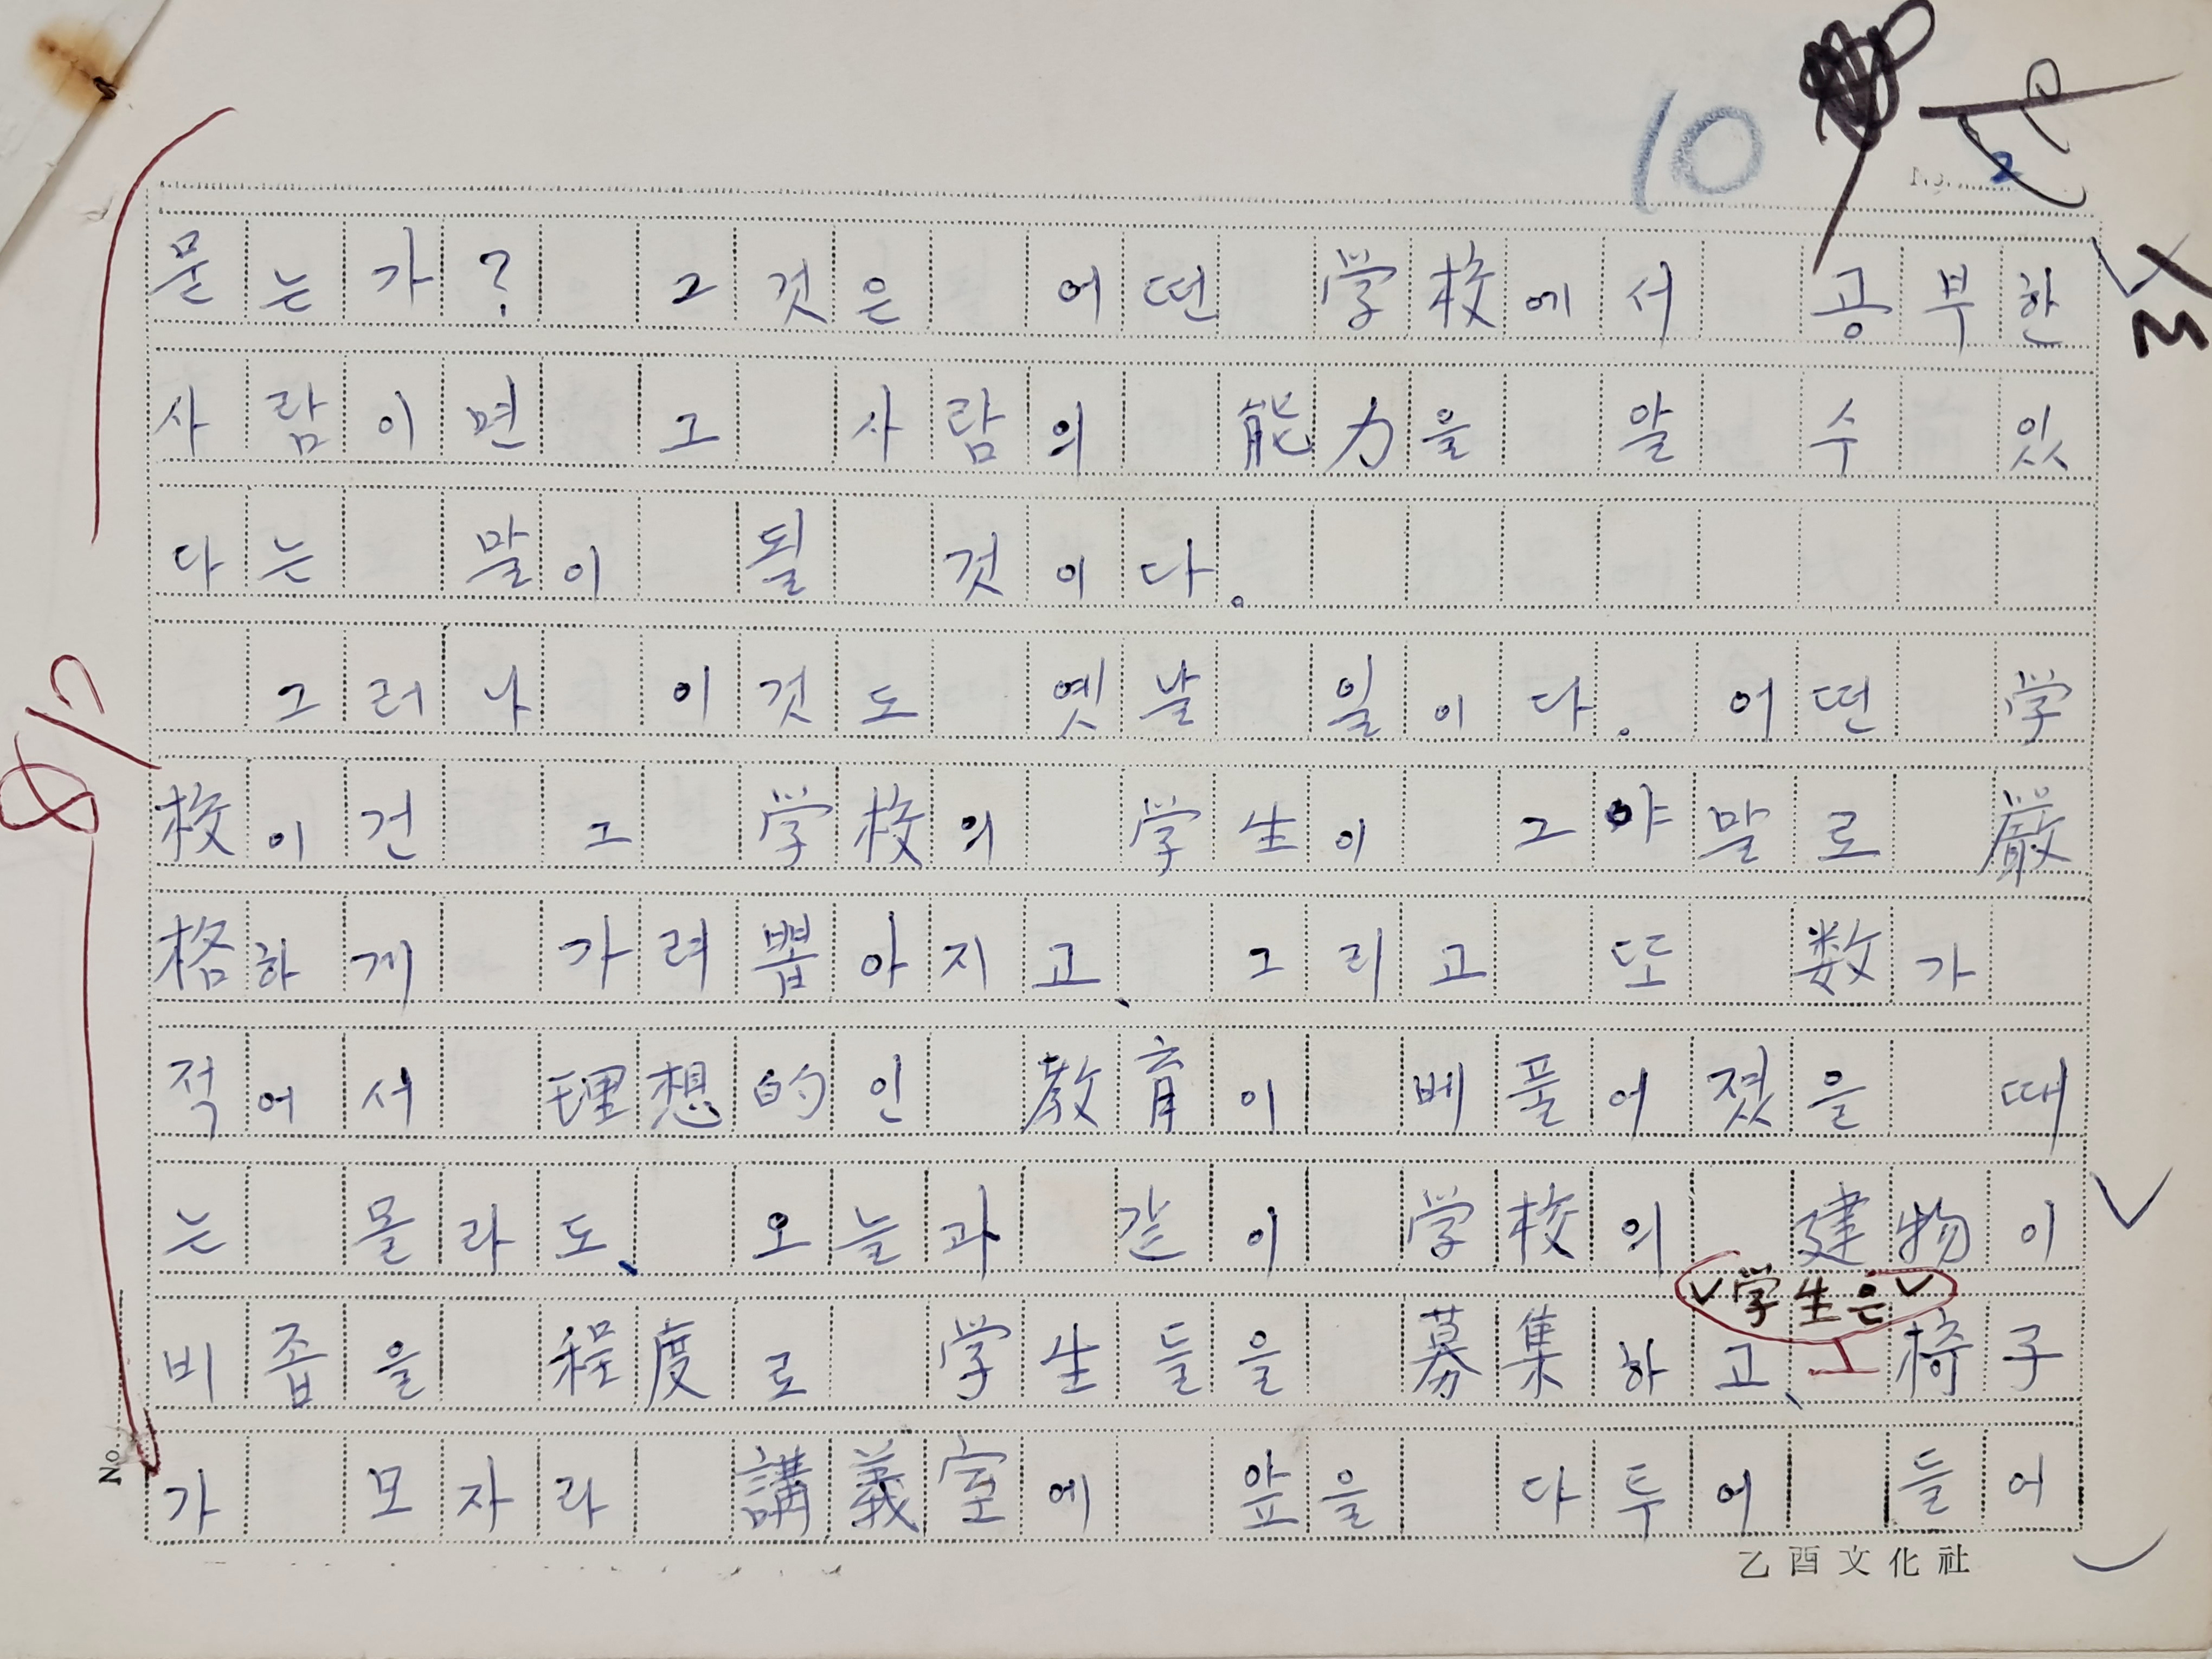 10
2
묻는가? 그것은 어떤 学校에서 공부한
사람이면 그 사람의 能力을 알 수 있
다는 말이 될 것이다.
그러나 이것도 옛날 일이다. 어떤 学
校이건 그 学校의 学生이 그야말로 厳
格하게 가려 뽑아지고, 그리고 또 数가
적어서 理想的인 教育이 베풀어졌을 때
는 몰라도, 오늘과 같이 学校의 建物이
비좁을 程度로 学生들을 募集하고, 学生은 椅子
가 모자라 講義室에 앞을 다투어 들어
No.
乙酉文化社